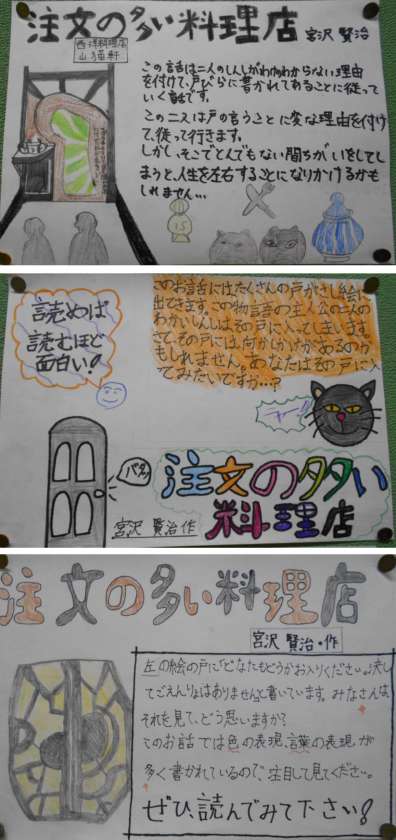 注文の多い料理店 宮沢 賢治
西洋料理店
山猫軒
この話は二人のしんしがわけのわからない理由
を付けて、戸びらに書かれてあることに従って
いく話です。
この二人は戸の言うことに変な理由を付け
て、従って行きます。
しかし、そこでとんでもない間ちがいをしてし
まうと、人生を左右することになりかけるかも
しれません…
読めば
読むほど
面白い!
このお話にはたくさんの戸がさし絵に
出てきます。この物語の主人公の二人の
わかいしんしはその戸に入ってしまいます。
さて、その戸には何かしかけがあるのか
もしれません。あなたはその戸に入
ってみたいですか…?
ニャー
バタン
注文の多い
料理店
宮沢 賢治 作
注文の多い料理店
宮沢 賢治・作
左の絵の戸に「どなたもどうかお入りください。決し
てごえんりょはありません」と書いています。みなさんは、
それを見て、どう思いますか?
このお話では色の表現、言葉の表現が
多く書かれているので、注目して見てください。
ぜひ、読んでみて下さい!